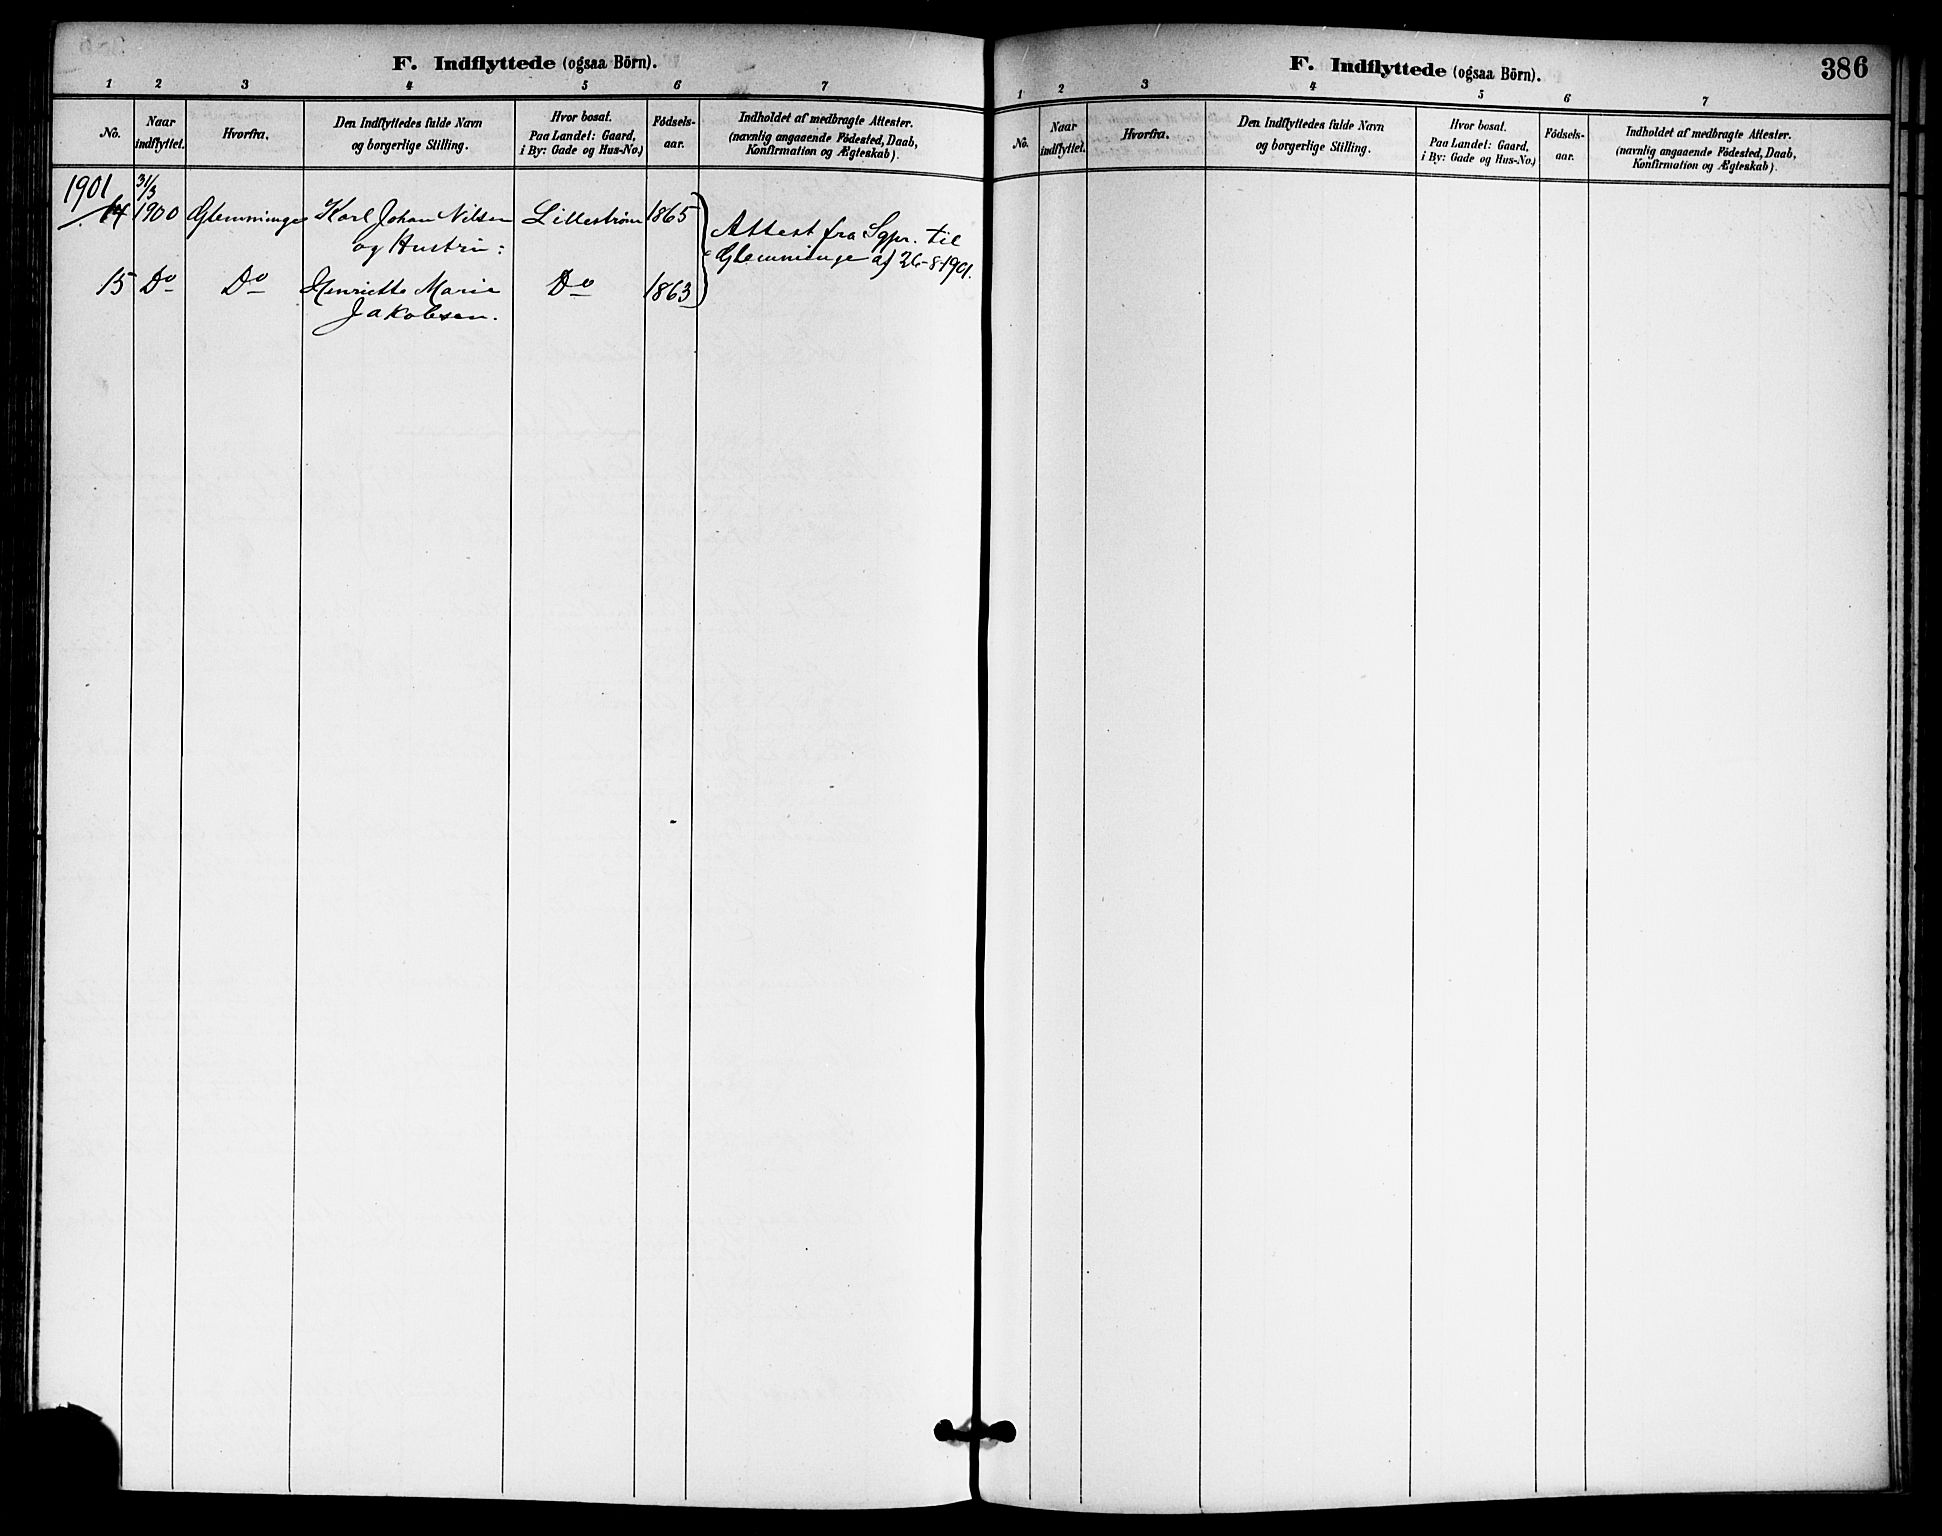 F. Indflyttede (ogsaa Börn).
1 2 3 4 5 6 7
No. Naar indflyttet. Hvorfra. Den Indflyttedes fulde Navn og borgerlige Stilling. Hvor bosat. Paa Landet: Gaard, i By: Gade og Hus-No.) Födsels-aar. Indholdet af medbragte Attester. (navnlig angaaende Födested, Daab, Konfirmation og Ægteskab).
1901 31/3
14 1900 Glemminge Karl Johan Nilsen Lillestrøm 1865 Attest fra Sgpr. til
og Hustru: Glemminge af 26-8-1901.
15 Do Do Henriette Marie Do 1863
Jakobsen.
F. Indflyttede (ogsaa Börn). 386
1 2 3 4 5 6 7
No. Naar indflyttet. Hvorfra. Den Indflyttedes fulde Navn og borgerlige Stilling. Hvor bosat. Paa Landet: Gaard, i By: Gade og Hus-No.) Födsels-aar. Indholdet af medbragte Attester. (navnlig angaaende Födested, Daab, Konfirmation og Ægteskab).